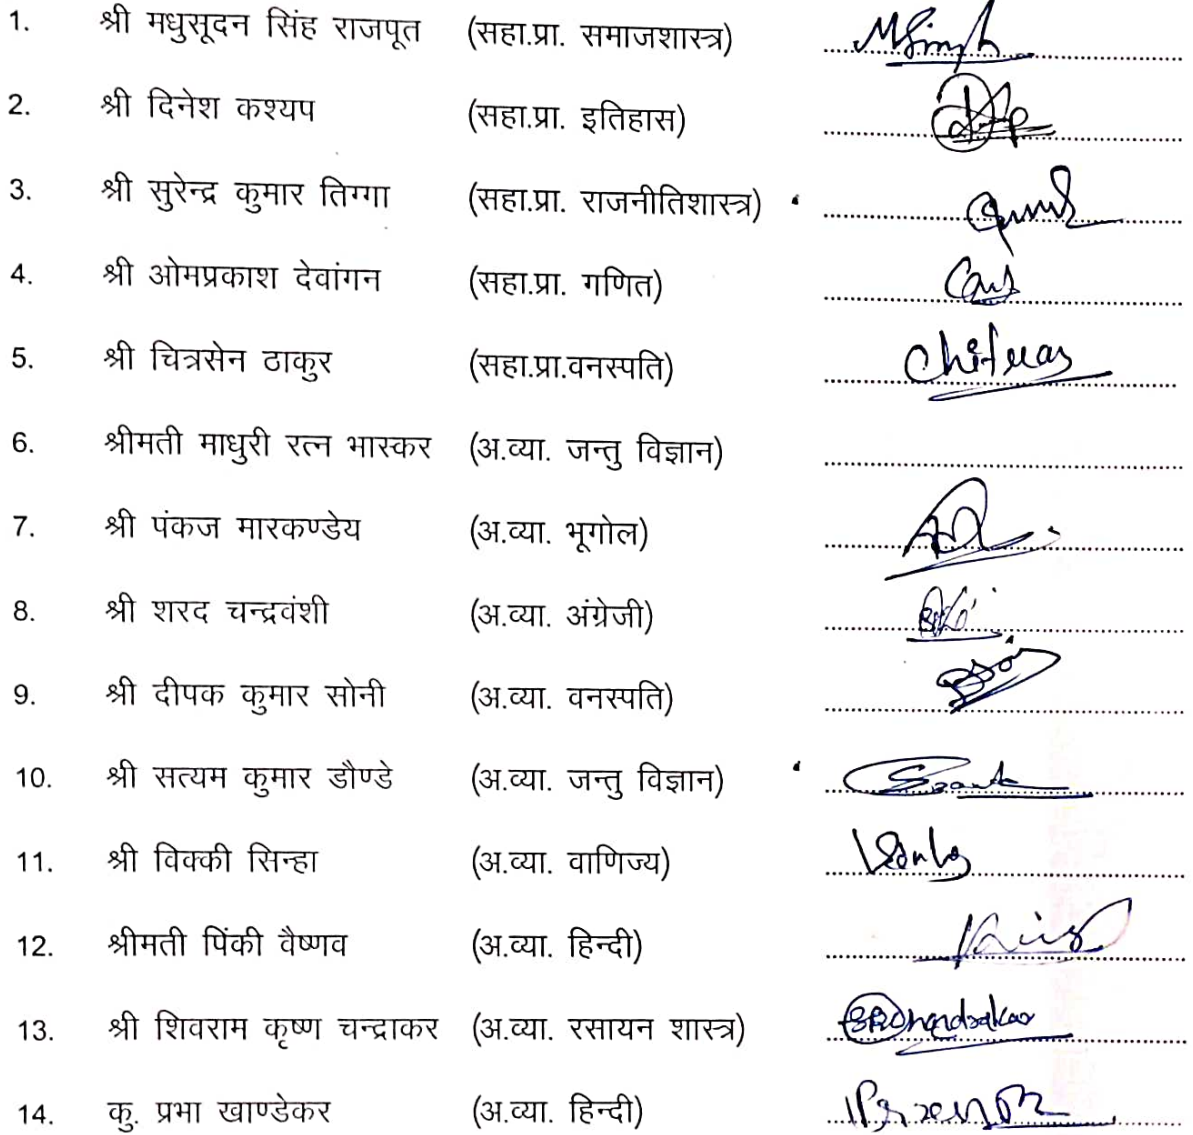 1. श्री मधुसूदन सिंह राजपूत (सहा.प्रा. समाजशास्त्र) MSingh
2. श्री दिनेश कश्यप (सहा.प्रा. इतिहास)
3. श्री सुरेन्द्र कुमार तिग्गा (सहा.प्रा. राजनीतिशास्त्र)
4. श्री ओमप्रकाश देवांगन (सहा.प्रा. गणित)
5. श्री चित्रसेन ठाकुर (सहा.प्रा.वनस्पति)
6. श्रीमती माधुरी रत्न भास्कर (अ.व्या. जन्तु विज्ञान)
7. श्री पंकज मारकण्डेय (अ.व्या. भूगोल)
8. श्री शरद चन्द्रवंशी (अ.व्या. अंग्रेजी)
9. श्री दीपक कुमार सोनी (अ.व्या. वनस्पति)
10. श्री सत्यम कुमार डौण्डे (अ.व्या. जन्तु विज्ञान)
11. श्री विक्की सिन्हा (अ.व्या. वाणिज्य)
12. श्रीमती पिंकी वैष्णव (अ.व्या. हिन्दी)
13. श्री शिवराम कृष्ण चन्द्राकर (अ.व्या. रसायन शास्त्र) SRChandrakar
14. कु. प्रभा खाण्डेकर (अ.व्या. हिन्दी)